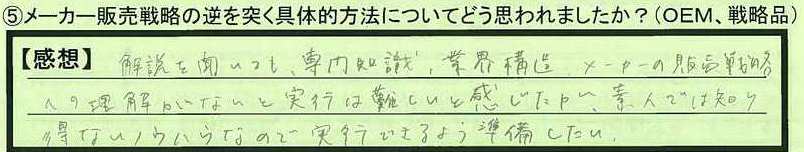 ⑤メーカー販売戦略の逆を突く具体的方法についてどう思われましたか？(OEM、戦略品)
【感想】 解説を聞いても、専門知識、業界構造、メーカーの販売戦略
への理解がないと実行は難しいと感じたが、素人では知り
得ないノウハウなので実行できるよう準備したい。